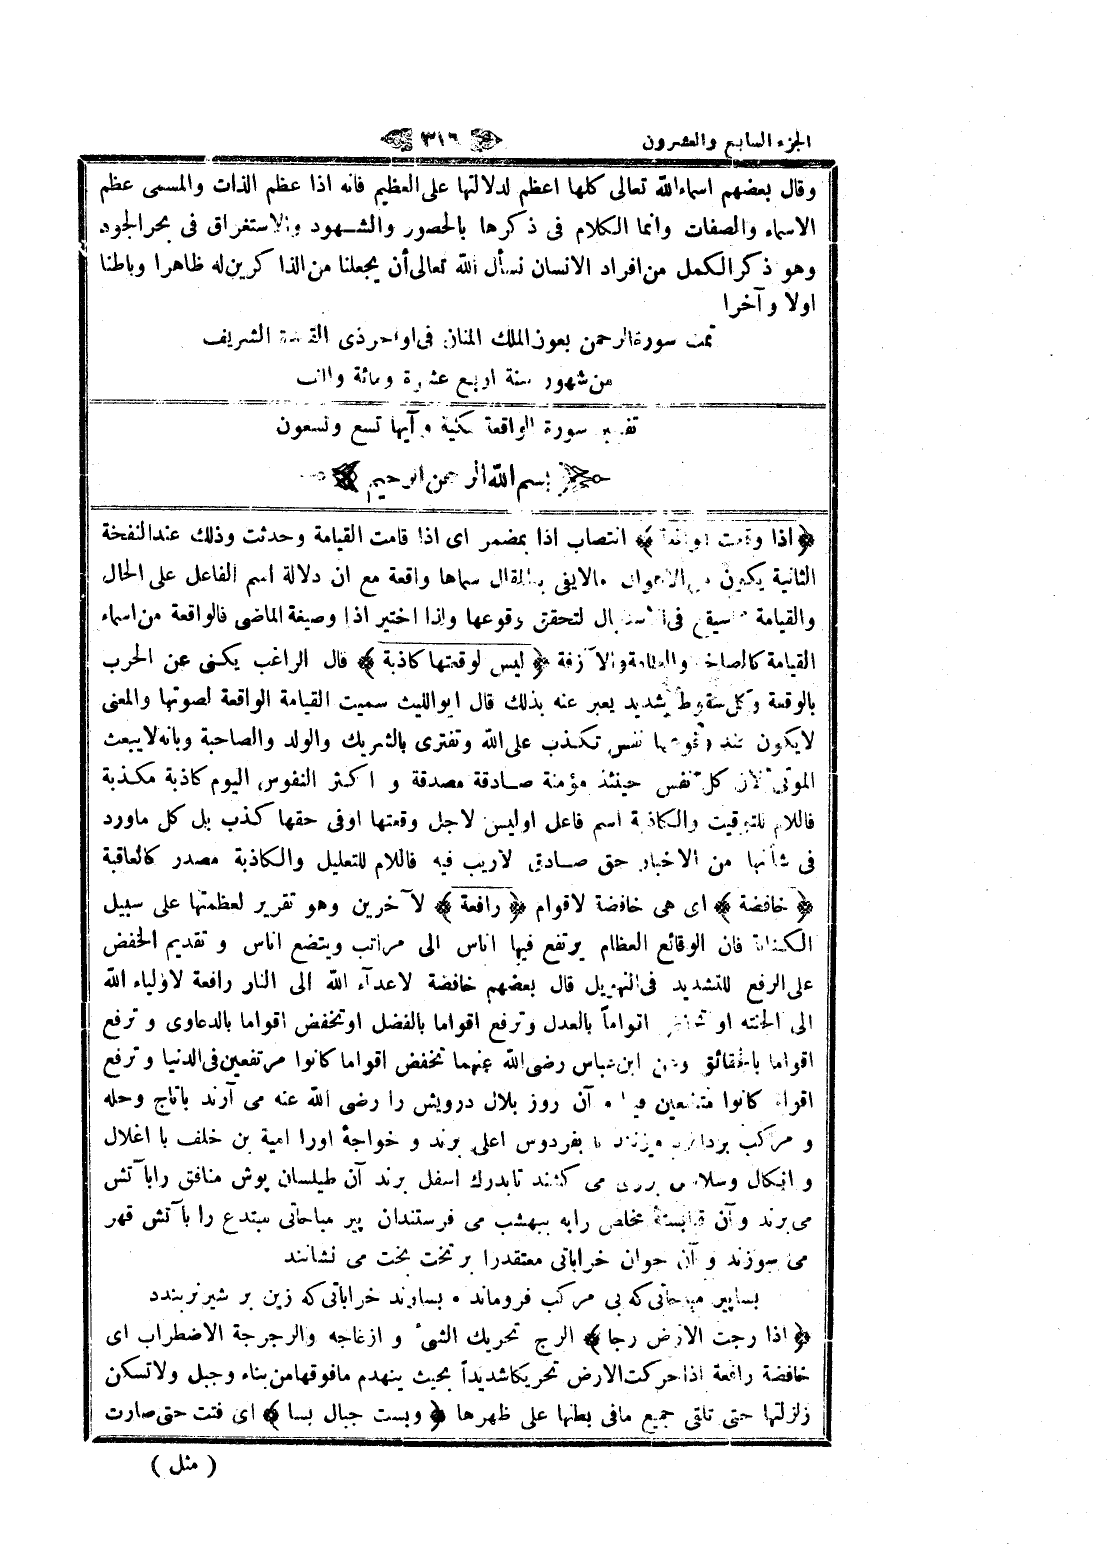 الجزء السابع والعشرون
٣١٦
وقال بعضهم اسماء الله تعالى كلها اعظم لدلالتها على العظيم فانه اذا عظم الذات والمسمى عظم
الاسماء والصفات وانما الكلام فى ذكرها بالحضور والشهود والاستغراق فى بحر الجود
وهو ذكر الكمل من افراد الانسان نسأل الله تعالى أن يجعلنا من الذاكرين له ظاهرا وباطنا
اولا وآخرا
تمت سورة الرحمن بعون الملك المنان فى اواخر ذى القعدة الشريف
من شهور سنة اربع عشرة ومائة والف
تفسير سورة الواقعة مكية وآيها تسع وتسعون
بسم الله الرحمن الرحيم
﴿ اذا وقعت الواقعة ﴾ انتصاب اذا بمضمر اى اذا قامت القيامة وحدثت وذلك عند النفخة
الثانية يكون من الاهوال مالايفى به المقال سماها واقعة مع ان دلالة اسم الفاعل على الحال
والقيامة مما سيقع فى الاستقبال لتحقق وقوعها ولذا اختير اذا وصيغة الماضى فالواقعة من اسماء
القيامة كالصاخة والطامة والآزفة ﴿ ليس لوقعتها كاذبة ﴾ قال الراغب يكنى عن الحرب
بالوقعة وكل سقوط شديد يعبر عنه بذلك قال ابوالليث سميت القيامة الواقعة لصوتها والمعنى
لايكون عند وقوعها نفس تكذب على الله وتفترى بالشريك والولد والصاحبة وبانه لايبعث
الموتى لان كل نفس حينئذ مؤمنة صادقة مصدقة و اكثر النفوس اليوم كاذبة مكذبة
فاللام للتوقيت والكاذبة اسم فاعل اوليس لاجل وقعتها اوفى حقها كذب بل كل ماورد
فى شأنها من الاخبار حق صادق لاريب فيه فاللام للتعليل والكاذبة مصدر كالعاقبة
﴿ خافضة ﴾ اى هى خافضة لاقوام ﴿ رافعة ﴾ لآخرين وهو تقرير لعظمتها على سبيل
الكناية فان الوقائع العظام يرتفع فيها اناس الى مراتب ويتضع اناس و تقديم الخفض
على الرفع للتشديد فى التهويل قال بعضهم خافضة لاعدآء الله الى النار رافعة لاولياء الله
الى الجنته او تخفض اقواماً بالعدل وترفع اقواما بالفضل او تخفض اقواما بالدعاوى و ترفع
اقواما بالحقائق وعن ابن عباس رضى الله عنهما تخفض اقواما كانوا مرتفعين فى الدنيا و ترفع
اقواما كانوا متضعين فيها ٭ آن روز بلال درويش را رضى الله عنه مى آرند باتاج وحله
و مركب بردابرد ميزنند تا بفردوس اعلى برند و خواجهٔ اورا امية بن خلف با اغلال
و انكال وسلاسل بروى مى كشند تابدرك اسفل برند آن طيلسان پوش منافق رابآتش
مى برند وآن قبابستهٔ مخلص رابه ببهشب مى فرستندان پير مباحاتى مبتدع را بآتش قهر
مى سوزند و آن جوان خراباتى معتقدرا بر تخت بخت مى نشانند
بساپير مناجاتى كه بى مركب فروماند ٭ بسارند خراباتى كه زين بر شير نر بندد
﴿ اذا رجت الارض رجا ﴾ الرج تحريك الشئ و ازعاجه والرجرجة الاضطراب اى
خافضة رافعة اذا حركت الارض تحريكا شديداً بحيث ينهدم مافوقها من بناء وجبل ولاتسكن
زلزلتها حتى تلقى جميع مافى بطنها على ظهرها ﴿ وبست جبال بسا ﴾ اى فتت حتى صارت
( مثل )